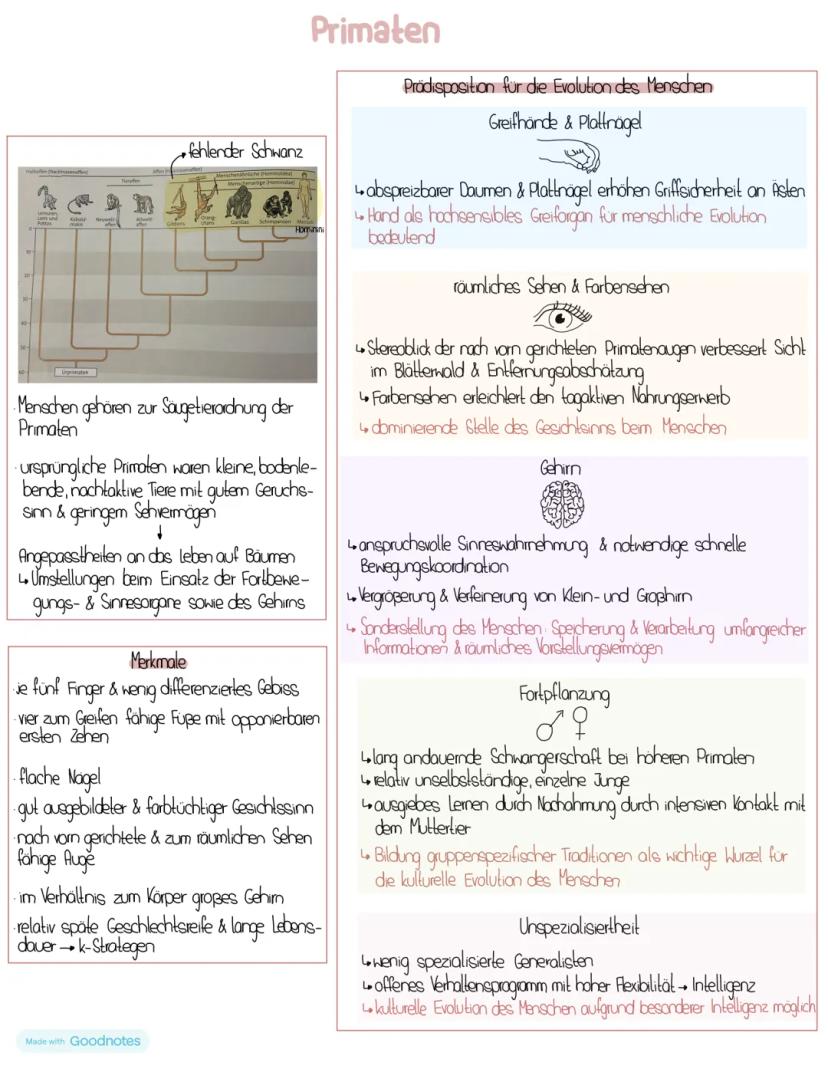 Primaten
fehlender Schwanz
Halbaffen (Nacktnasenaffen)
Affen
Tieraffen
Menschenähnliche (Hominoidea)
Menschenartige (Hominidae)
Lemuren,
Loris und
Pottos
Kobold-
makis
Neuwelt-
affen
Altwelt-
affen
Gibbons
Orang-
Utans
Gorillas
Schimpansen
Mensch
Hominini
0
10
20
30
40
50
60
Urprimaten
· Menschen gehören zur Säugetierordnung der
Primaten
· ursprüngliche Primaten waren kleine, bodenle-
bende, nachtaktive Tiere mit gutem Geruchs-
sinn & geringem Sehvermögen
↓
Angepasstheiten an das Leben auf Bäumen
↳ Umstellungen beim Einsatz der Fortbewe-
gungs- & Sinnesorgane sowie des Gehirns
Merkmale
· je fünf Finger & wenig differenziertes Gebiss
· vier zum Greifen fähige Füße mit opponierbaren
ersten Zehen
· flache Nägel
· gut ausgebildeter & farbtüchtiger Gesichtssinn
· nach vorn gerichtete & zum räumlichen Sehen
fähige Auge
· im Verhältnis zum Körper großes Gehirn
· relativ späte Geschlechtsreife & lange Lebens-
dauer → k-Strategen
Prädisposition für die Evolution des Menschen
Greifhände & Plattnägel
↳ abspreizbarer Daumen & Plattnägel erhöhen Griffsicherheit an Ästen
↳ Hand als hochsensibles Greiforgan für menschliche Evolution
bedeutend
räumliches Sehen & Farbensehen
↳ Stereoblick der nach vorn gerichteten Primatenaugen verbessert Sicht
im Blätterwald & Entfernungsabschätzung
↳ Farbensehen erleichtert den tagaktiven Nahrungserwerb
↳ dominierende Stelle des Gesichtsinns beim Menschen
Gehirn
↳ anspruchsvolle Sinneswahrnehmung & notwendige schnelle
Bewegungskoordination
↳ Vergrößerung & Verfeinerung von Klein- und Großhirn
↳ Sonderstellung des Menschen: Speicherung & Verarbeitung umfangreicher
Informationen & räumliches Vorstellungsvermögen
Fortpflanzung
♂ ♀
↳ lang andauernde Schwangerschaft bei höheren Primaten
↳ relativ unselbstständige, einzelne Junge
↳ ausgiebes Lernen durch Nachahmung durch intensiven Kontakt mit
dem Muttertier
↳ Bildung gruppenspezifischer Traditionen als wichtige Wurzel für
die kulturelle Evolution des Menschen
Unspezialisiertheit
↳ wenig spezialisierte Generalisten
↳ offenes Verhaltensprogramm mit hoher Flexibilität → Intelligenz
↳ kulturelle Evolution des Menschen aufgrund besonderer Intelligenz möglich
Made with Goodnotes